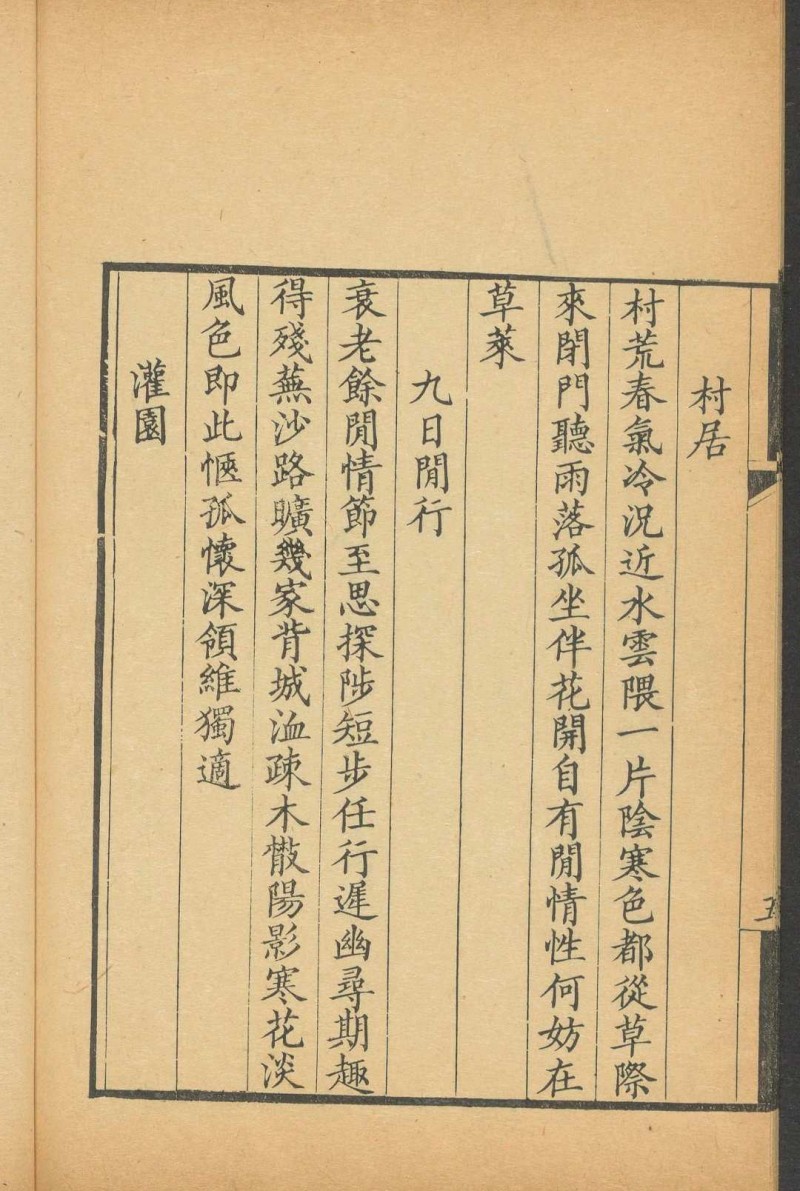 村居
村荒春氣冷況近水雲隈一片陰寒色都從草際
來閉門聽雨落孤坐伴花開自有閒情性何妨在
草萊
九日閒行
衰老餘閒情節至思探陟短步任行遲幽尋期趣
得殘蕪沙路曠幾家背城洫疎木散陽影寒花淡
風色即此愜孤懷深領維獨適
灌園
五